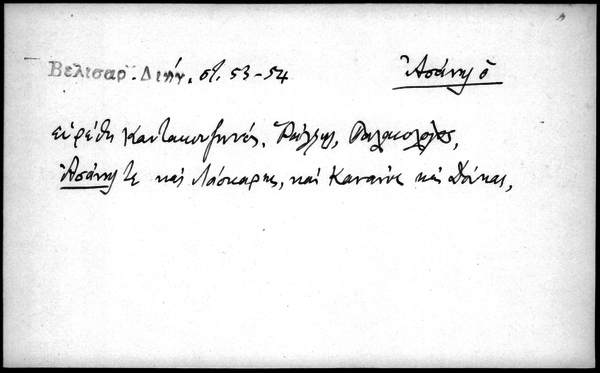 Βελισαρ. Διήγ. στ. 53-54 Ἀσάνης ὁ
εὑρέθη Καντακουζηνός, Ῥάλλης, Παλαιολόγος,
Ἀσάνης τε καὶ Λάσκαρης, καὶ Κανανὸς καὶ Δούκας,